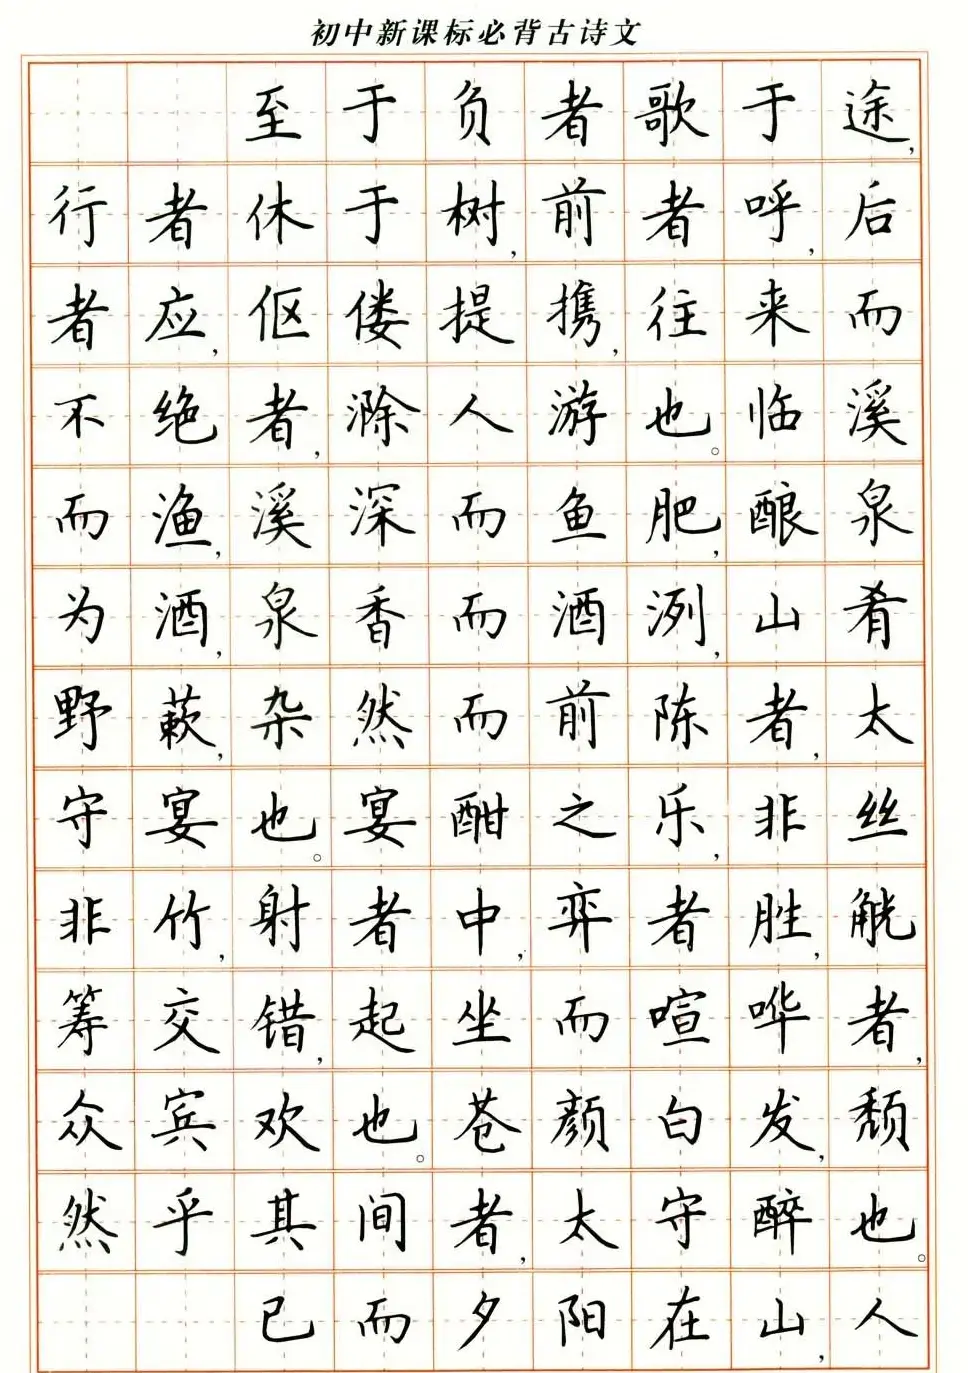 初中新课标必背古诗文
至于负者歌于途,
行者休于树,前者呼,后
者应,伛偻提携,往来而
不绝者,滁人游也。临溪
而渔,溪深而鱼肥,酿泉
为酒,泉香而酒洌,山肴
野蔌,杂然而前陈者,太
守宴也。宴酣之乐,非丝
非竹,射者中,弈者胜,觥
筹交错,起坐而喧哗者,
众宾欢也。苍颜白发,颓
然乎其间者,太守醉也。
已而夕阳在山,人